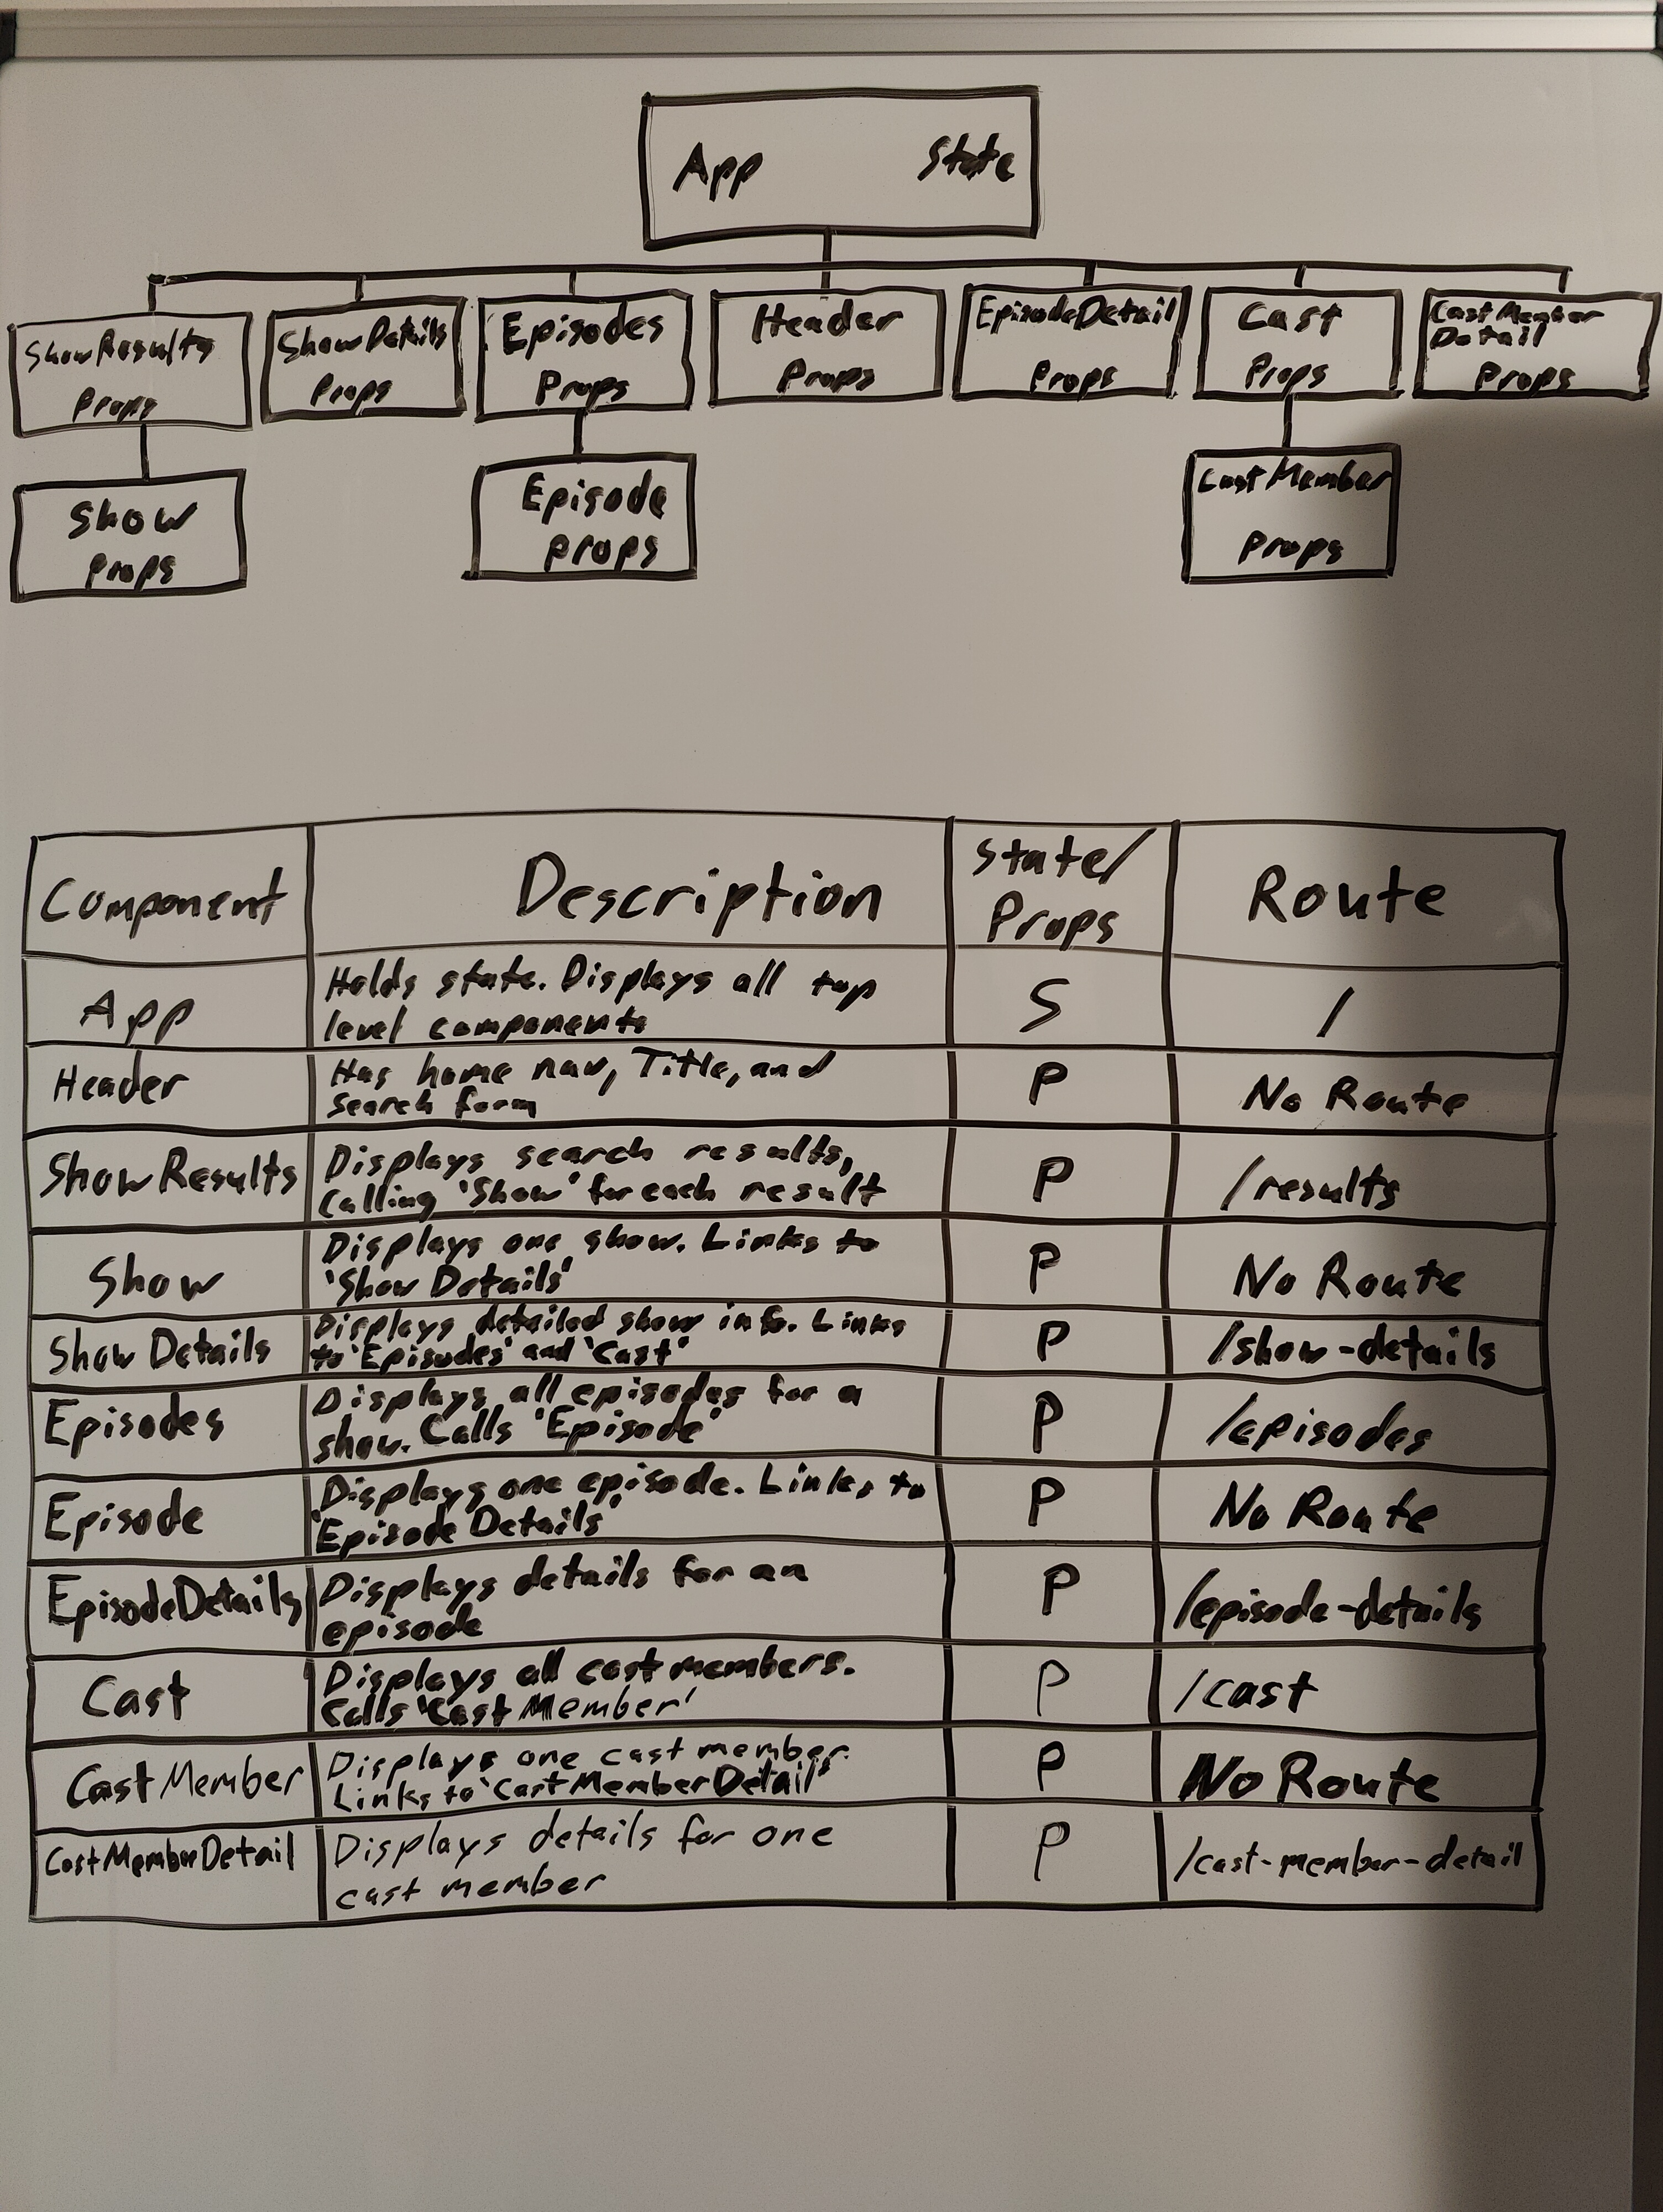 App State
ShowResults
Props
ShowDetails
Props
Episodes
Props
Header
Props
EpisodeDetail
Props
Cast
Props
CastMember
Detail
Props
Show
Props
Episode
Props
CastMember
Props
Component
Description
State/
Props
Route
App
Holds state. Displays all top
level components
S
/
Header
Has home nav, Title, and
search form
P
No Route
ShowResults
Displays search results,
calling 'Show' for each result
P
/results
Show
Displays one show. Links to
'Show Details'
P
No Route
Show Details
Displays detailed show info. Links
to 'Episodes' and 'Cast'
P
/show-details
Episodes
Displays all episodes for a
show. Calls 'Episode'
P
/episodes
Episode
Displays one episode. Links to
'Episode Details'
P
No Route
EpisodeDetails
Displays details for an
episode
P
/episode-details
Cast
Displays all cast members.
Calls 'Cast Member'
P
/cast
CastMember
Displays one cast member.
Links to 'CastMemberDetail'
P
No Route
CastMemberDetail
Displays details for one
cast member
P
/cast-member-detail